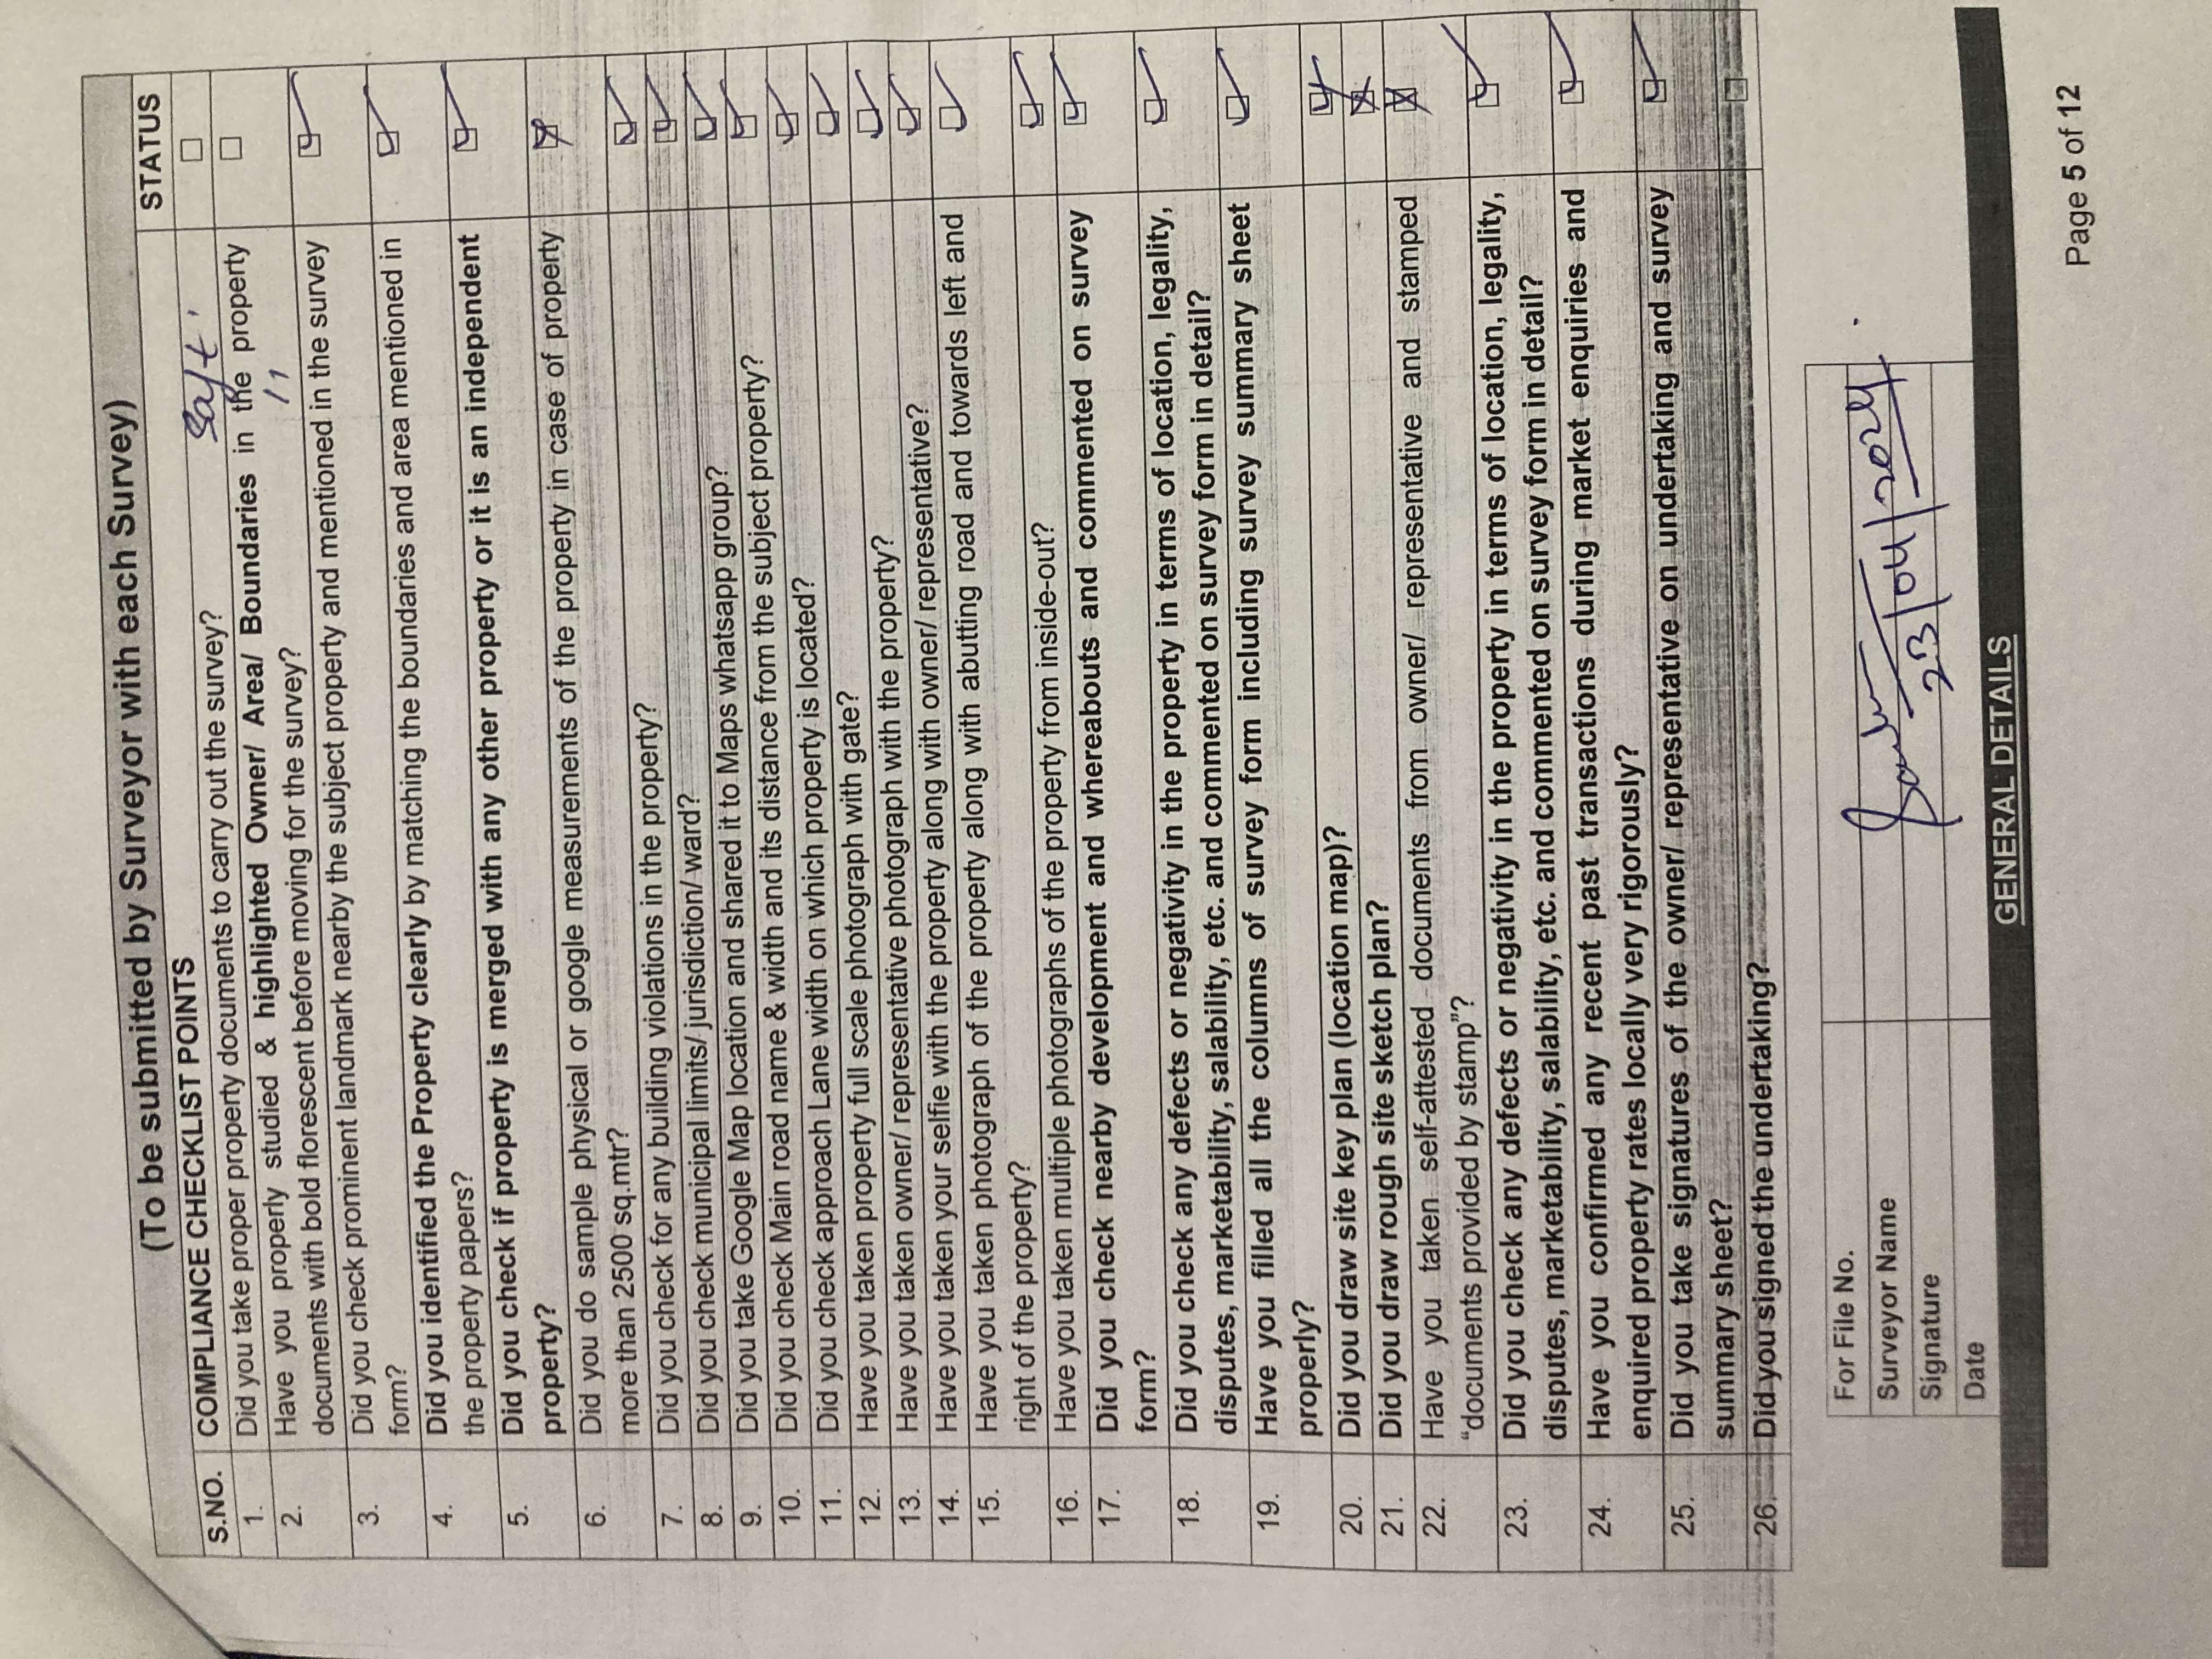 (To be submitted by Surveyor with each Survey)
S.NO. COMPLIANCE CHECKLIST POINTS STATUS
1. Did you take proper property documents to carry out the survey? ☐
2. Have you properly studied & highlighted Owner/ Area/ Boundaries in the property ☐
documents with bold florescent before moving for the survey?
3. Did you check prominent landmark nearby the subject property and mentioned in the survey
form?
4. Did you identified the Property clearly by matching the boundaries and area mentioned in
the property papers?
5. Did you check if property is merged with any other property or it is an independent
property?
6. Did you do sample physical or google measurements of the property in case of property
more than 2500 sq.mtr?
7. Did you check for any building violations in the property?
8. Did you check municipal limits/ jurisdiction/ ward?
9. Did you take Google Map location and shared it to Maps whatsapp group?
10. Did you check Main road name & width and its distance from the subject property?
11. Did you check approach Lane width on which property is located?
12. Have you taken property full scale photograph with gate?
13. Have you taken owner/ representative photograph with the property?
14. Have you taken your selfie with the property along with owner/ representative?
15. Have you taken photograph of the property along with abutting road and towards left and
right of the property?
16. Have you taken multiple photographs of the property from inside-out?
17. Did you check nearby development and whereabouts and commented on survey
form?
18. Did you check any defects or negativity in the property in terms of location, legality,
disputes, marketability, salability, etc. and commented on survey form in detail?
19. Have you filled all the columns of survey form including survey summary sheet
properly?
20. Did you draw site key plan (location map)?
21. Did you draw rough site sketch plan?
22. Have you taken self-attested documents from owner/ representative and stamped
“documents provided by stamp”?
23. Did you check any defects or negativity in the property in terms of location, legality,
disputes, marketability, salability, etc. and commented on survey form in detail?
24. Have you confirmed any recent past transactions during market enquiries and
enquired property rates locally very rigorously?
25. Did you take signatures of the owner/ representative on undertaking and survey
summary sheet?
26. Did you signed the undertaking?
For File No.
Surveyor Name
Signature
Date 23/04/2024
GENERAL DETAILS
Page 5 of 12